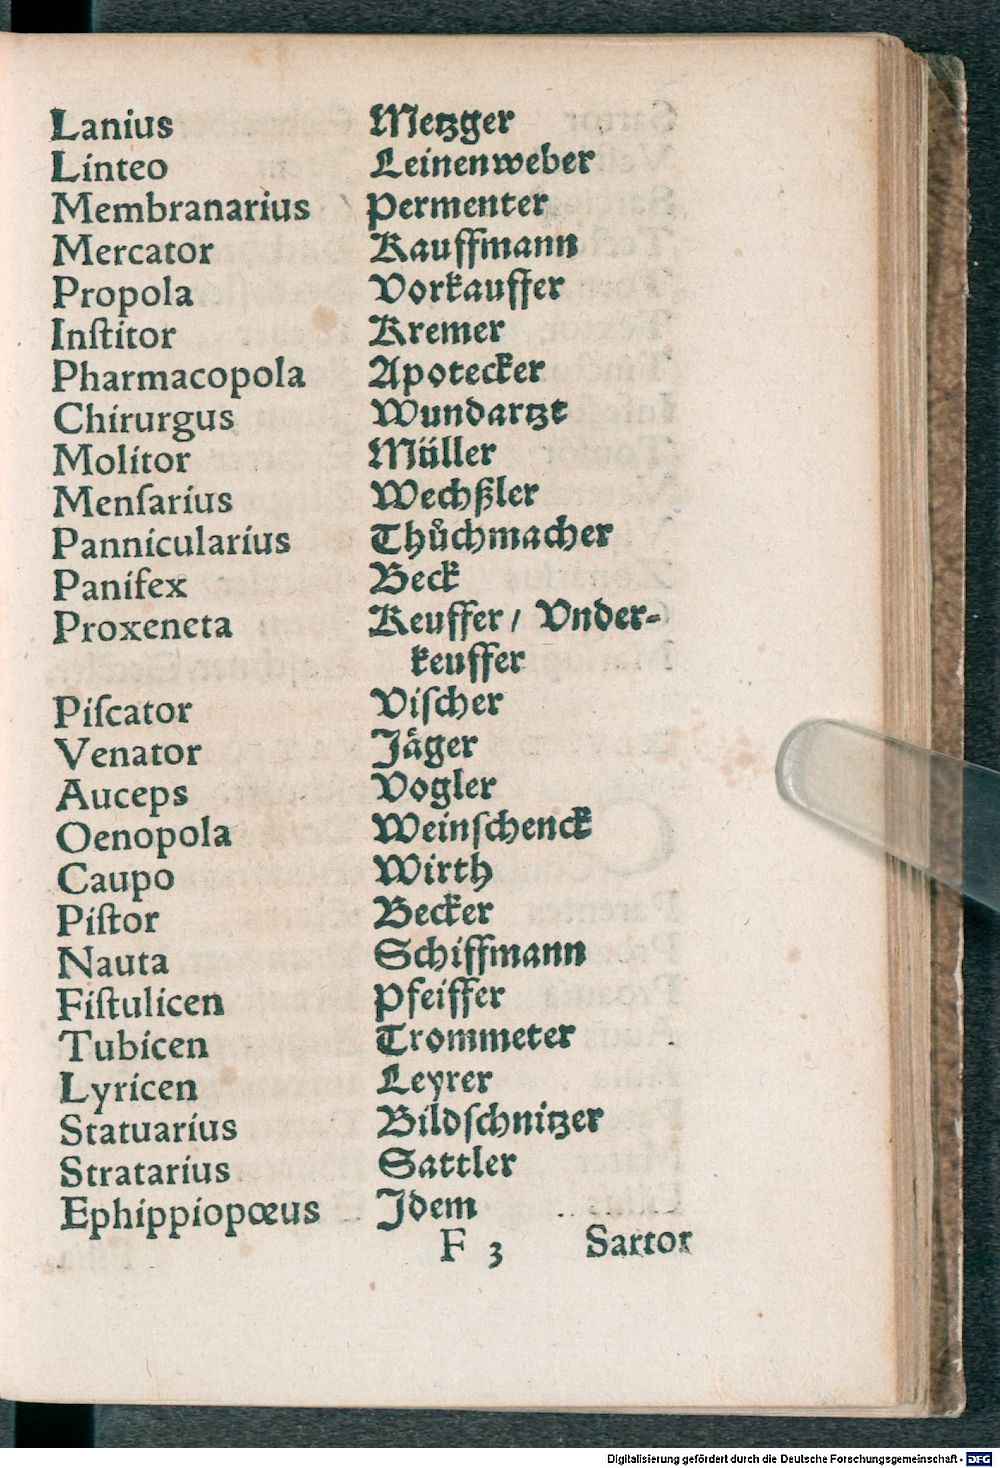 Lanius Metzger
Linteo Leinenweber
Membranarius Permenter
Mercator Kauffmann
Propola Vorkauffer
Inſtitor Kremer
Pharmacopola Apotecker
Chirurgus Wundartzt
Molitor Müller
Menſarius Wechßler
Pannicularius Thůchmacher
Panifex Beck
Proxeneta Keuffer / Vnder-
keuffer
Piſcator Viſcher
Venator Jäger
Auceps Vogler
Oenopola Weinſchenck
Caupo Wirth
Piſtor Becker
Nauta Schiffmann
Fiſtulicen Pfeiffer
Tubicen Trommeter
Lyricen Leyrer
Statuarius Bildſchnitzer
Stratarius Sattler
Ephippiopœus Jdem
F 3 Sartor
Digitalisierung gefördert durch die Deutsche Forschungsgemeinschaft - DFG